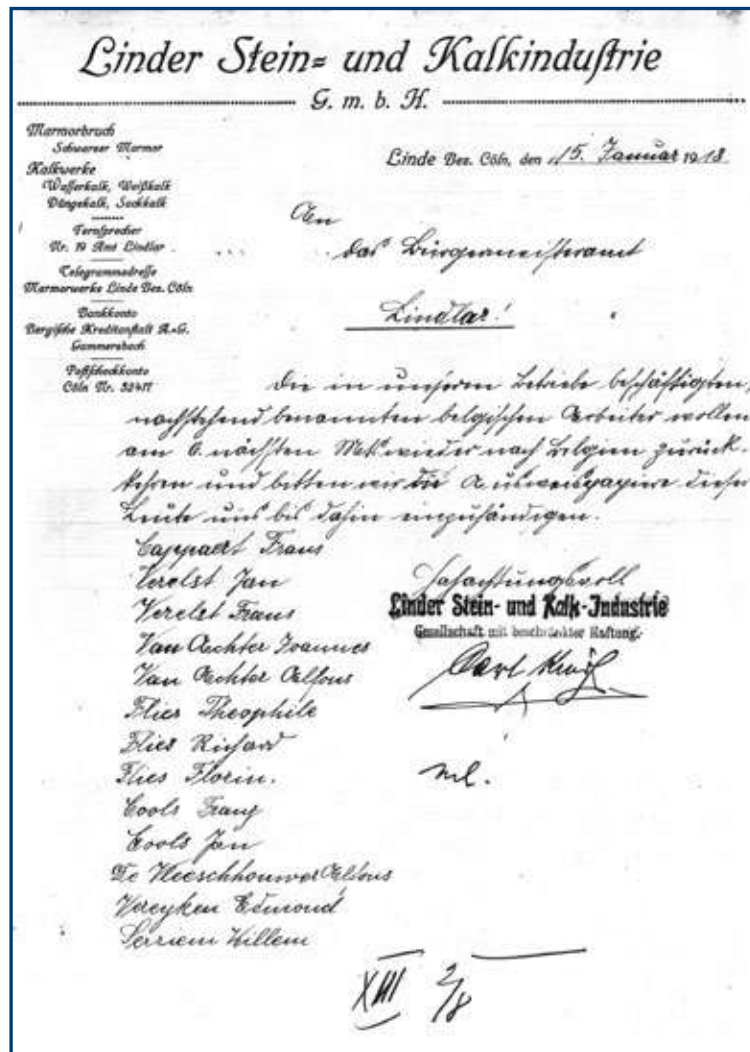 Linder Stein= und Kalkindustrie
G. m. b. H.
Marmorbruch
Schwarzer Marmor
Kalkwerke
Wasserkalk, Weißkalk
Düngekalk, Sackkalk
Fernsprecher
Nr. 19 Amt Lindlar
Telegrammadresse
Marmorwerke Linde Bez. Cöln
Bankkonto
Bergische Kreditanstalt A.=G.
Gummersbach
Postscheckkonto
Cöln Nr. 52411
Linde Bez. Cöln, den 15. Januar 1918.
An
das Bürgermeisteramt
Lindlar!
Die in unserem Betriebe beschäftigten,
nachstehend benannten belgischen Arbeiter wollen
am 6. nächsten Mts. wieder nach Belgien zurück-
kehren und bitten wir die Ausweispapiere dieser
Leute uns bis dahin einzuhändigen.
Cappaert Frans
Verelst Jan
Verelst Frans
Van Aechter Joannes
Van Aechter Alfons
Flies Theophile
Flies Richard
Flies Florin.
Cools Franz
Cools Jan
De Weeschhouwer Alfons
Vereyken Edmond
Willem
Hochachtungsvoll
Linder Stein- und Kalk-Industrie
Gesellschaft mit beschränkter Haftung.
Carl
XIII 2/8